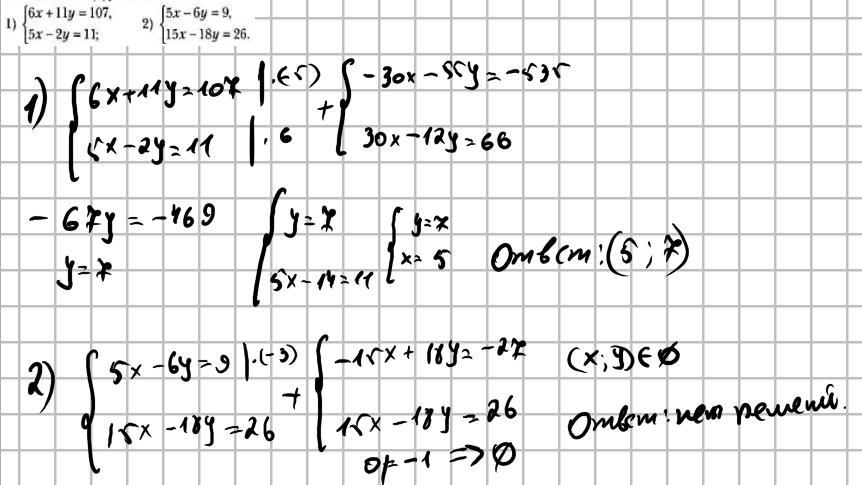 1) { 6x + 11y = 107, 5x − 2y = 11;
2) { 5x − 6y = 9, 15x − 18y = 26.
1) { 6x + 11y = 107 | ·(-5) + { -30x − 55y = −535
5x − 2y = 11 | · 6 30x − 12y = 66
− 67y = −469 { y = 7 { y = 7
y = 7 5x − 14 = 11 x = 5 Ответ: (5 ; 7)
2) { 5x − 6y = 9 | ·(−3) + { −15x + 18y = −27 (x; y) ∈ ∅
15x − 18y = 26 15x − 18y = 26 Ответ: нет решений.
0 ≠ −1 => ∅